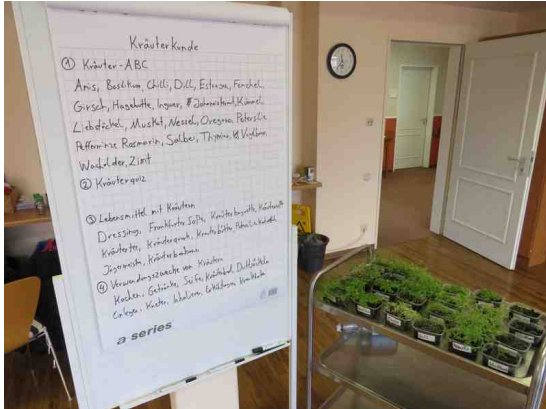 Kräuterkunde
① Kräuter-ABC
Anis, Basilikum, Chilli, Dill, Estragon, Fenchel,
Girsch, Hagebutte, Ingwer, Johanniskraut, Kümmel,
Liebstöckel, Muskat, Nessel, Oregano, Petersilie
Pfefferminze Rosmarin, Salbei, Thymian,
Wacholder, Zimt
② Kräuterquiz
③ Lebensmittel mit Kräutern
Dressings, Frankfurter Soße, Kräuterbaguette,
Kräutertee, Kräuterquark,
Jägermeister, Kräuterbonbons
④ Verwendungszwecke von Kräutern
Kochen, Getränke, Seife, Kräuterbad,
Einlegen, Inhalieren,
a series